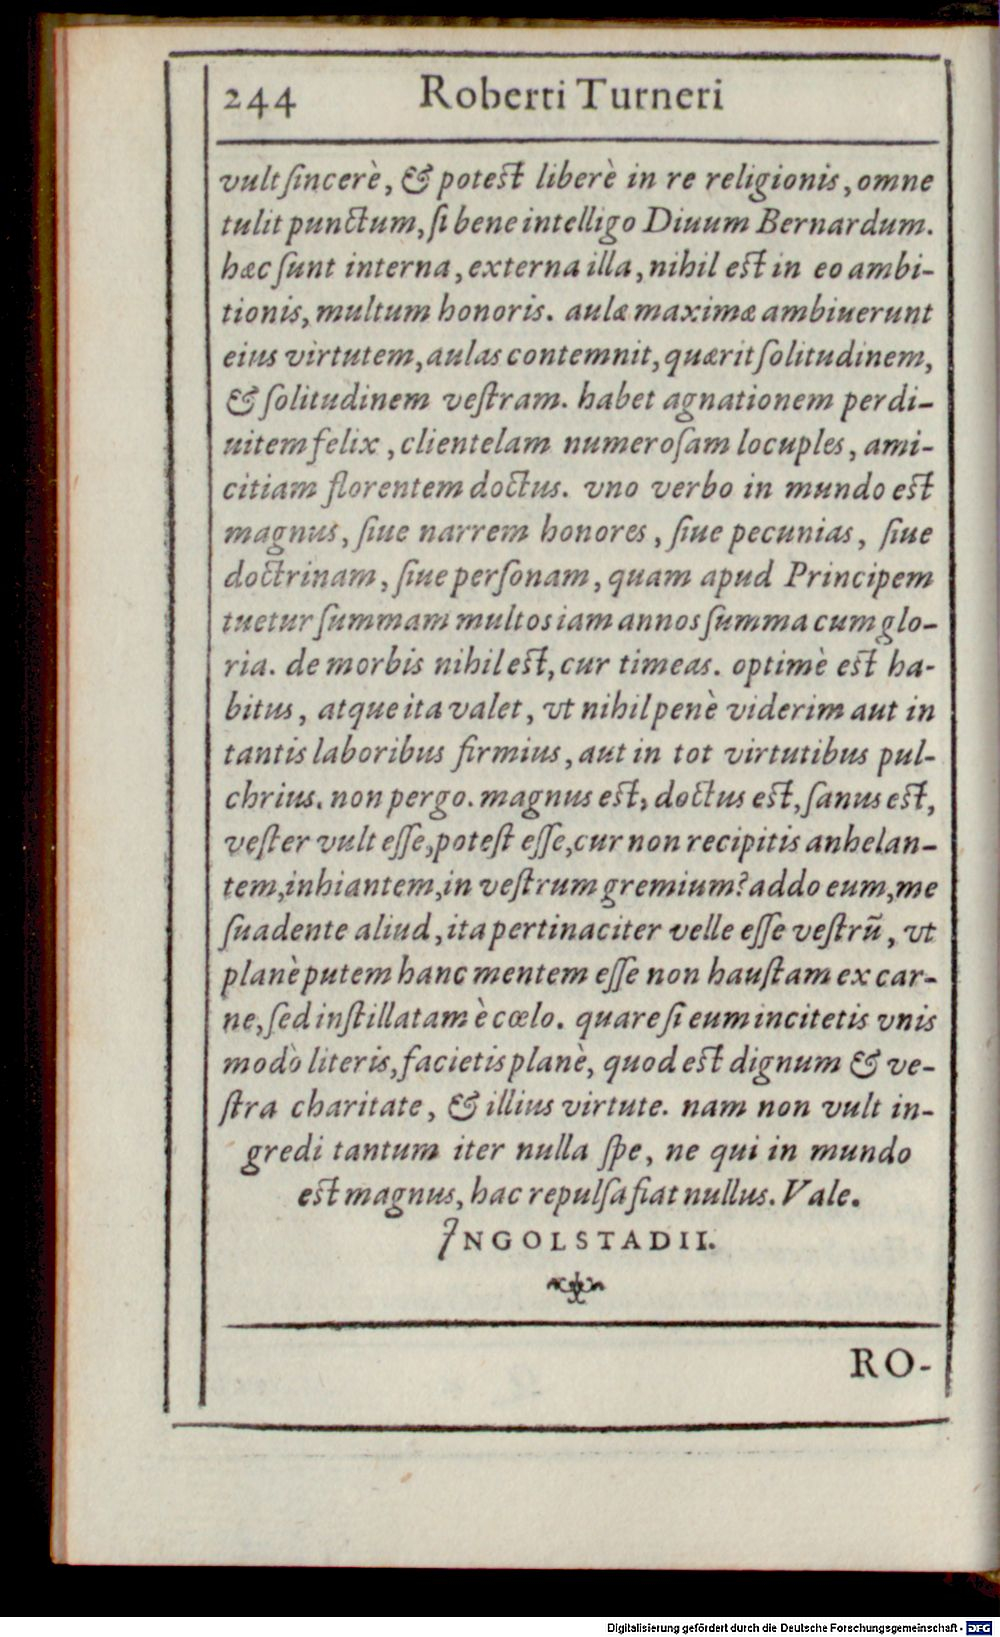 244 Roberti Turneri
vult ſincerè, & poteſt liberè in re religionis, omne
tulit punctum, ſi bene intelligo Diuum Bernardum.
hæc ſunt interna, externa illa, nihil eſt in eo ambi-
tionis, multum honoris. aulæ maximæ ambiuerunt
eius virtutem, aulas contemnit, quærit ſolitudinem,
& ſolitudinem veſtram. habet agnationem perdi-
uitem felix, clientelam numeroſam locuples, ami-
citiam florentem doctus. vno verbo in mundo eſt
magnus, ſiue narrem honores, ſiue pecunias, ſiue
doctrinam, ſiue perſonam, quam apud Principem
tuetur ſummam multos iam annos ſumma cum glo-
ria. de morbis nihil eſt, cur timeas. optimè eſt ha-
bitus, atque ita valet, vt nihil penè viderim aut in
tantis laboribus firmius, aut in tot virtutibus pul-
chrius. non pergo. magnus eſt, doctus eſt, ſanus eſt,
veſter vult eſſe, poteſt eſſe, cur non recipitis anhelan-
tem, inhiantem, in veſtrum gremium? addo eum, me
ſuadente aliud, ita pertinaciter velle eſſe veſtrũ, vt
planè putem hanc mentem eſſe non hauſtam ex car-
ne, ſed inſtillatam è cœlo. quare ſi eum incitetis vnis
modò literis, facietis planè, quod eſt dignum & ve-
ſtra charitate, & illius virtute. nam non vult in-
gredi tantum iter nulla ſpe, ne qui in mundo
eſt magnus, hac repulſa fiat nullus. Vale.
INGOLSTADII.
RO-
Digitalisierung gefördert durch die Deutsche Forschungsgemeinschaft - DFG